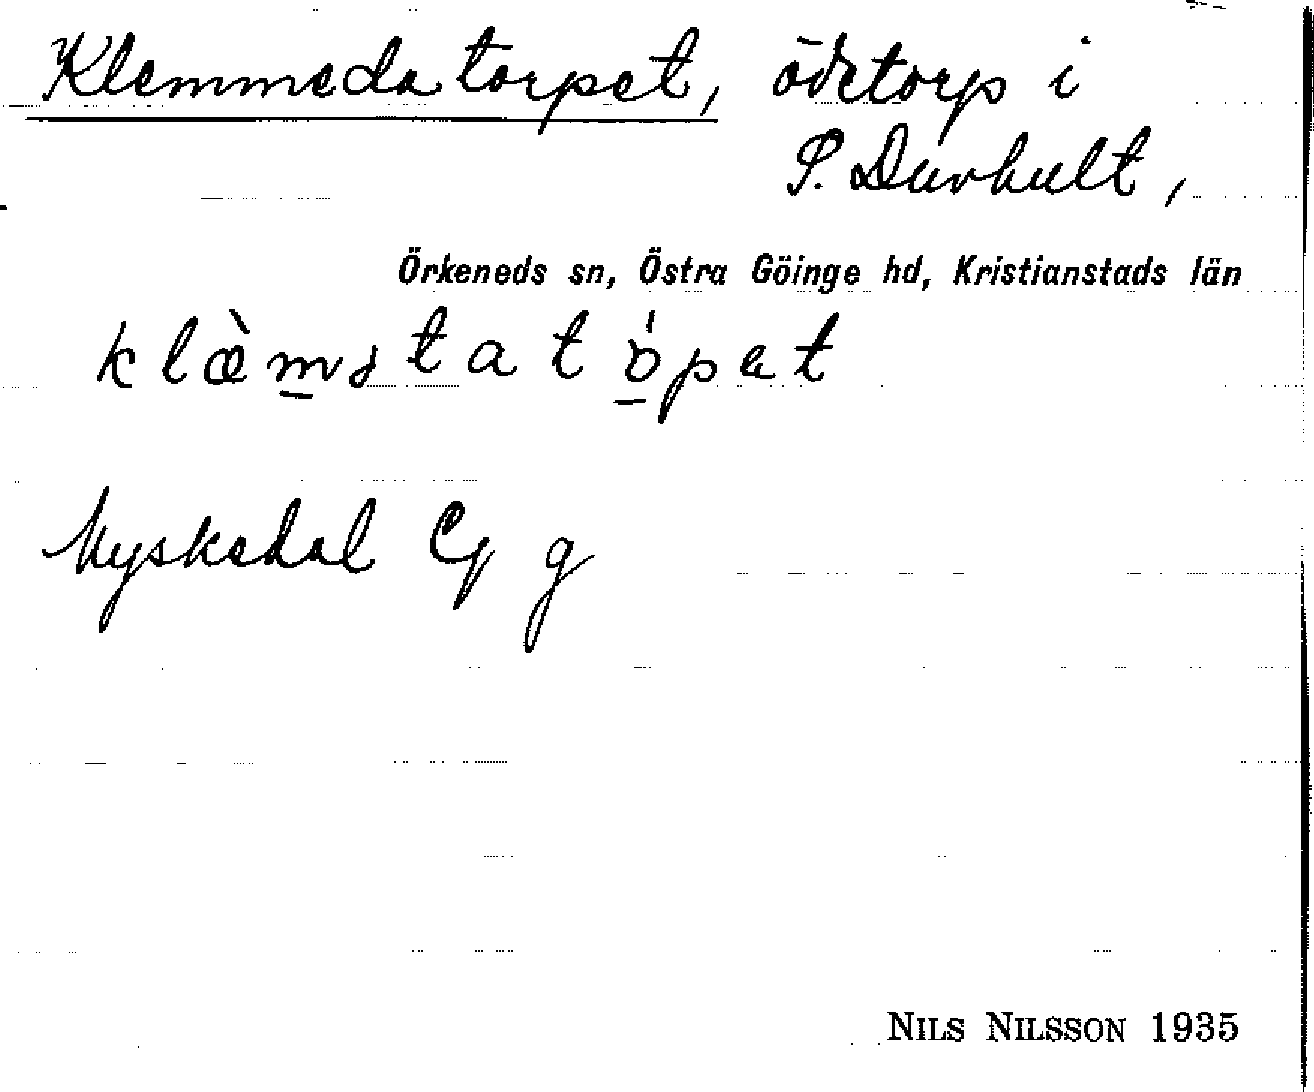 Klemmedatorpet, ödetorp i
S. Duvhult,
Örkeneds sn, Östra Göinge hd, Kristianstads län
Myskedal g
NILS NILSSON 1935